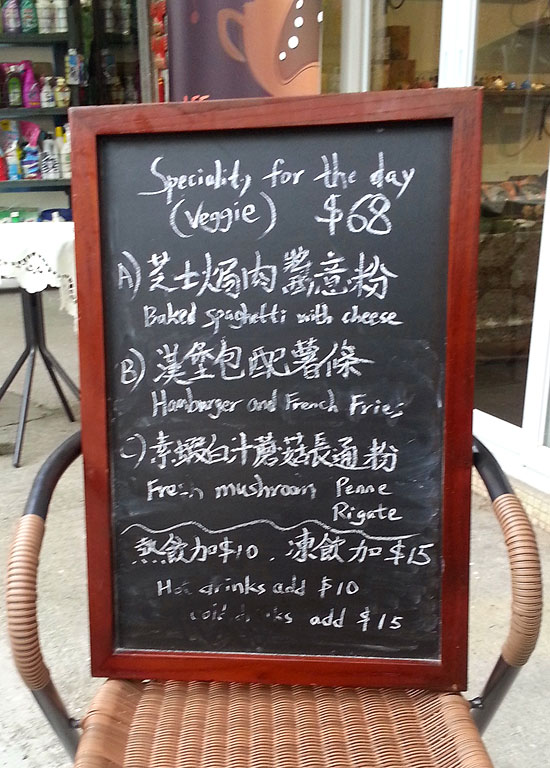 Speciality for the day
(Veggie) $68
A) 芝士焗肉醬意粉
Baked spaghetti with cheese
B) 漢堡包配薯條
Hamburger and French Fries
C) 素蝦白汁蘑菇長通粉
Fresh mushroom Penne
Rigate
熱飲加$10 . 凍飲加$15
Hot drinks add $10
cold drinks add $15